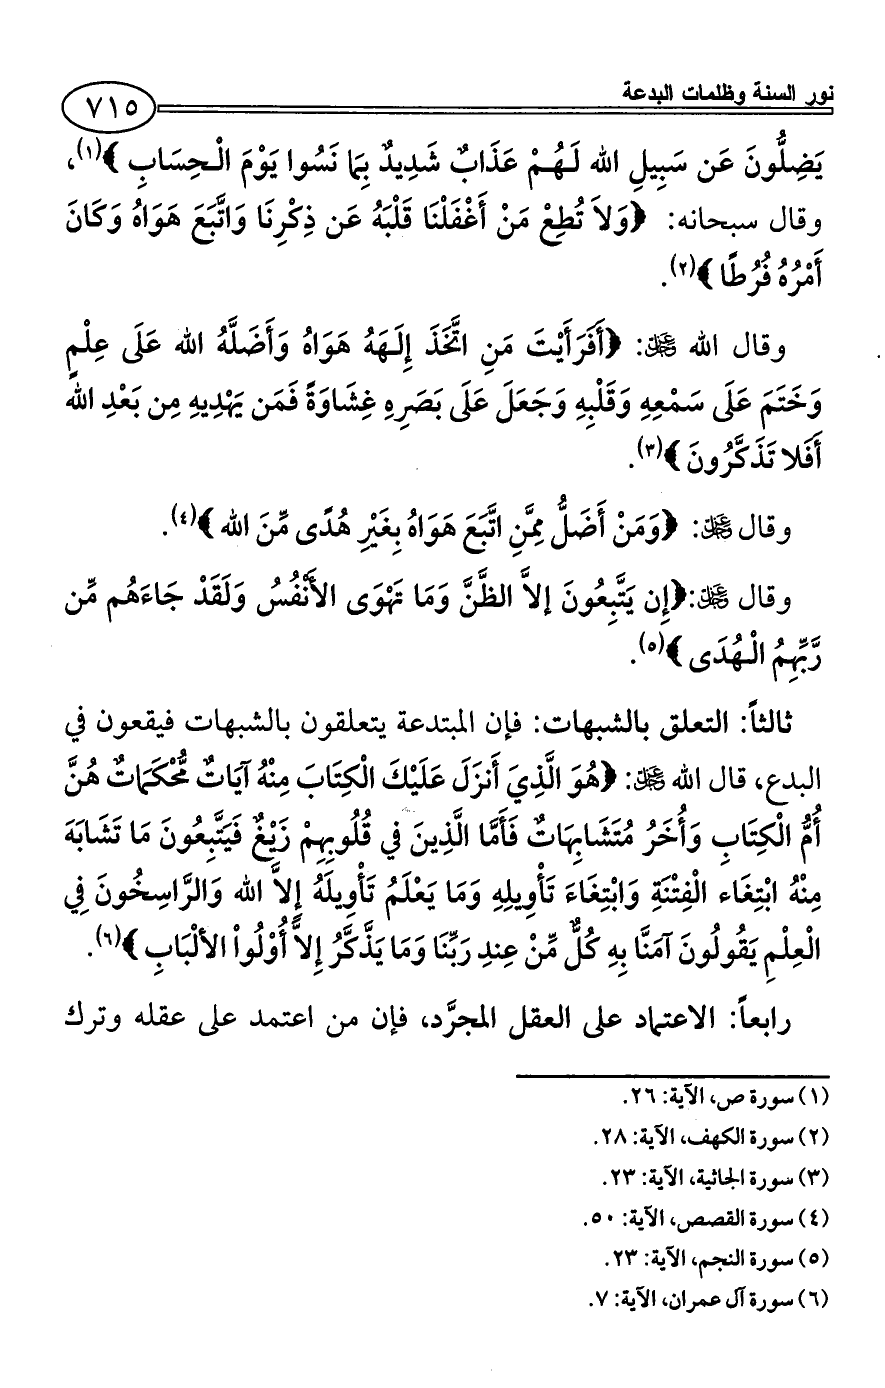 نور السنة وظلمات البدعة
٧١٥
يَضِلُّونَ عَن سَبِيلِ الله لَـهُمْ عَذَابٌ شَدِيدٌ بِمَا نَسُوا يَوْمَ الْـحِسَابِ ﴾(١)،
وقال سبحانه: ﴿وَلاَ تُطِعْ مَنْ أَغْفَلْنَا قَلْبَهُ عَن ذِكْرِنَا وَاتَّبَعَ هَوَاهُ وَكَانَ
أَمْرُهُ فُرُطًا ﴾(٢).
وقال الله ﷿: ﴿أَفَرَأَيْتَ مَنِ اتَّخَذَ إِلَـهَهُ هَوَاهُ وَأَضَلَّهُ الله عَلَى عِلْمٍ
وَخَتَمَ عَلَى سَمْعِهِ وَقَلْبِهِ وَجَعَلَ عَلَى بَصَرِهِ غِشَاوَةً فَمَن يَهْدِيهِ مِن بَعْدِ الله
أَفَلا تَذَكَّرُونَ ﴾(٣).
وقال ﷿: ﴿وَمَنْ أَضَلُّ مِمَّنِ اتَّبَعَ هَوَاهُ بِغَيْرِ هُدًى مِّنَ الله ﴾(٤).
وقال ﷿:﴿إِن يَتَّبِعُونَ إلاَّ الظَّنَّ وَمَا تَهْوَى الأَنْفُسُ وَلَقَدْ جَاءَهُم مِّن
رَّبِّهِمُ الْـهُدَى ﴾(٥).
ثالثاً: التعلق بالشبهات: فإن المبتدعة يتعلقون بالشبهات فيقعون في
البدع، قال الله ﷿: ﴿هُوَ الَّذِيَ أَنزَلَ عَلَيْكَ الْكِتَابَ مِنْهُ آيَاتٌ مُّحْكَمَاتٌ هُنَّ
أُمُّ الْكِتَابِ وَأُخَرُ مُتَشَابِهَاتٌ فَأَمَّا الَّذِينَ في قُلُوبِهِمْ زَيْغٌ فَيَتَّبِعُونَ مَا تَشَابَهَ
مِنْهُ ابْتِغَاء الْفِتْنَةِ وَابْتِغَاءَ تَأْوِيلِهِ وَمَا يَعْلَمُ تَأْوِيلَهُ إِلاَّ الله وَالرَّاسِخُونَ فِي
الْعِلْمِ يَقُولُونَ آمَنَّا بِهِ كُلٌّ مِّنْ عِندِ رَبِّنَا وَمَا يَذَّكَّرُ إِلاَّ أُوْلُواْ الألْبَابِ ﴾(٦).
رابعاً: الاعتماد على العقل المجرَّد، فإن من اعتمد على عقله وترك
(١) سورة ص، الآية: ٢٦.
(٢) سورة الكهف، الآية: ٢٨.
(٣) سورة الجاثية، الآية: ٢٣.
(٤) سورة القصص، الآية: ٥٠.
(٥) سورة النجم، الآية: ٢٣.
(٦) سورة آل عمران، الآية: ٧.